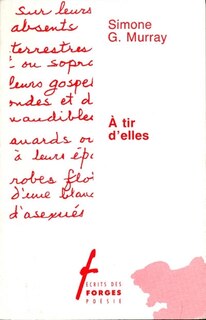 Sur leurs
absents
terrestres
ou sopra
leurs gospe
ondes et d
naudibles
anards ou
à leurs épa
robes flo
d'une blanc
d'asexués
Simone
G. Murray
À tir
d'elles
ÉCRITS DES
FORGES
POÉSIE